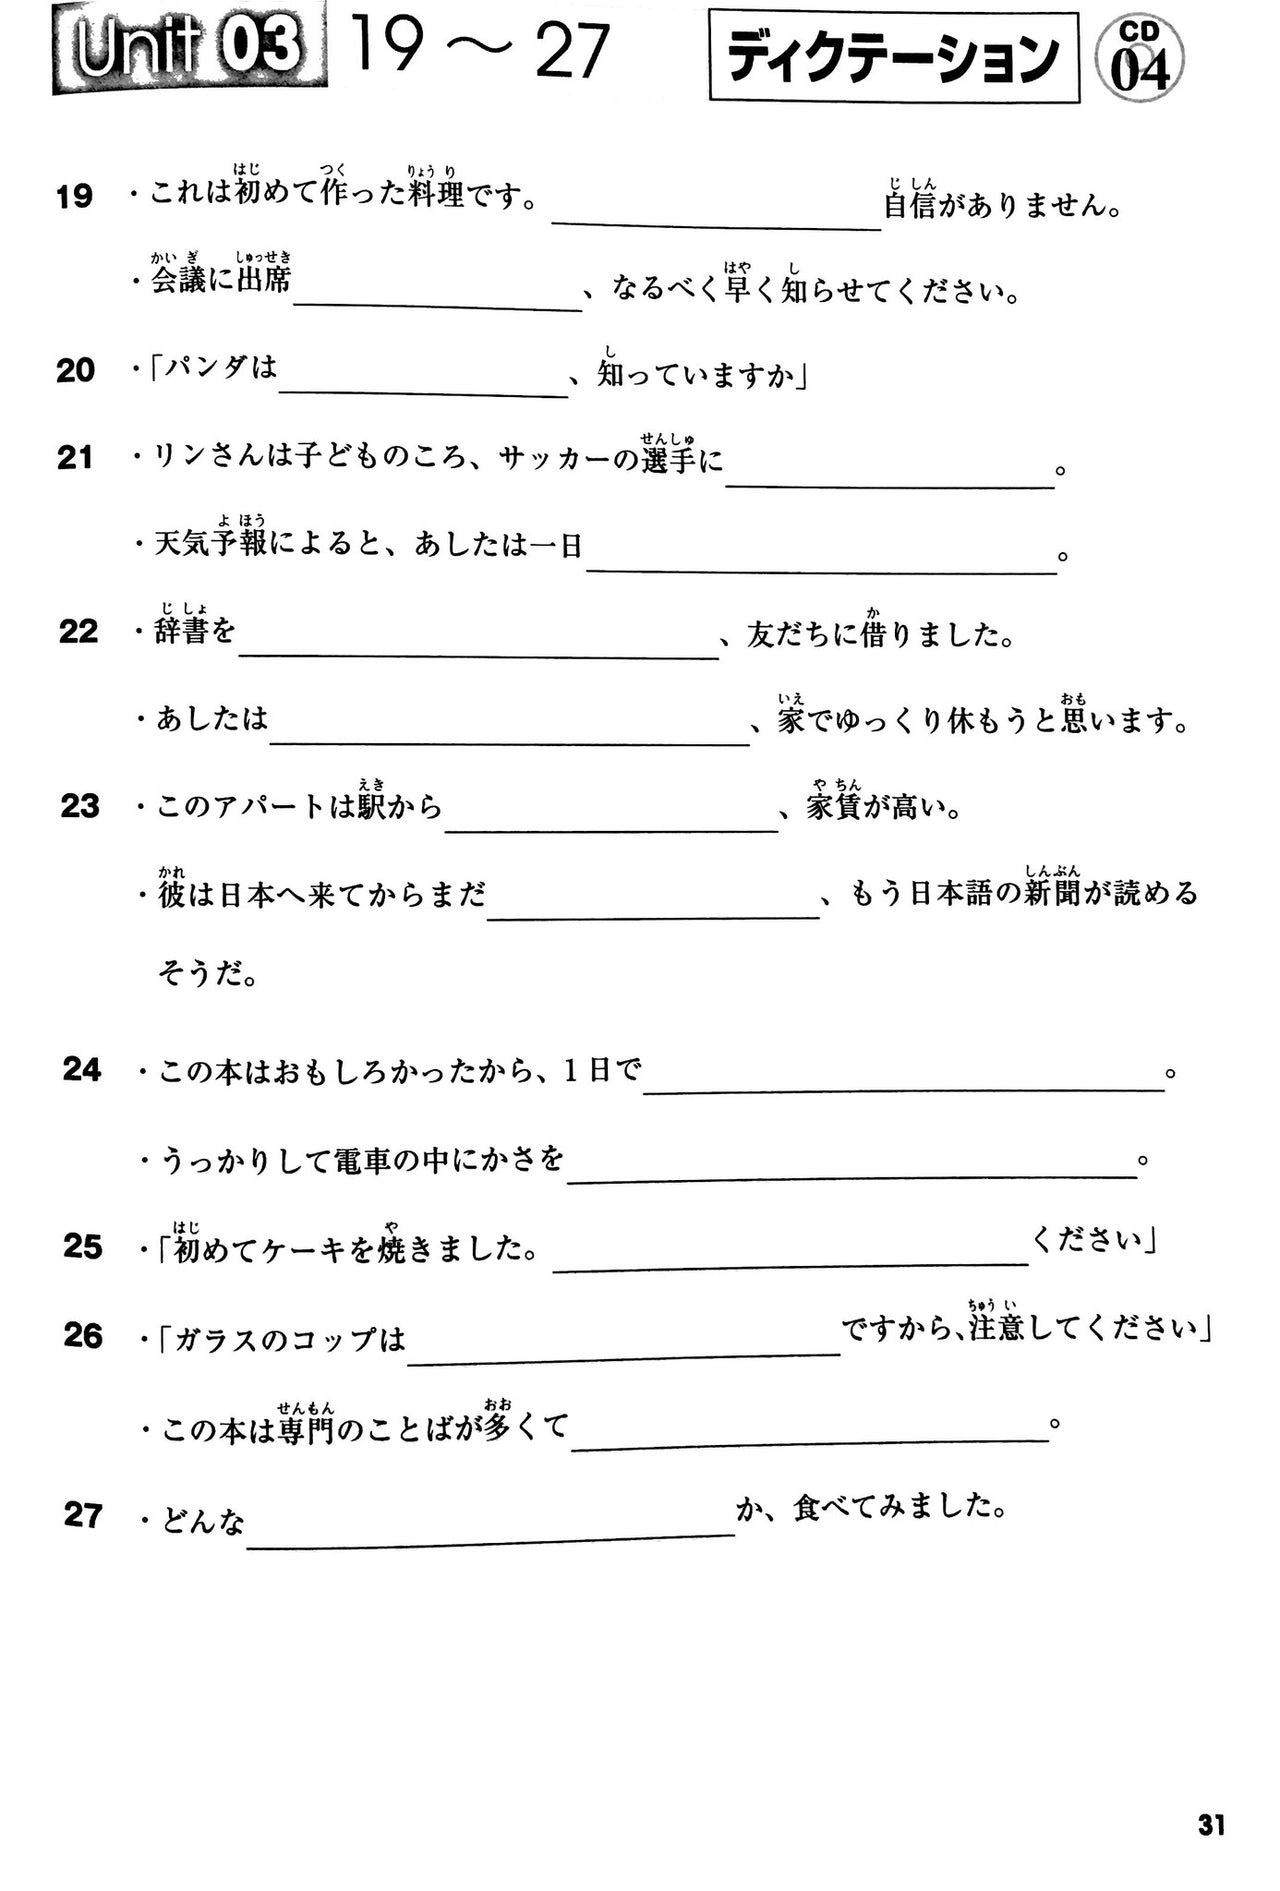 Unit 03 19～27 ディクテーション CD 04
19 ・これは初めて作った料理です。____自信がありません。
・会議に出席____、なるべく早く知らせてください。
20 ・「パンダは____、知っていますか」
21 ・リンさんは子どものころ、サッカーの選手に____。
・天気予報によると、あしたは一日____。
22 ・辞書を____、友だちに借りました。
・あしたは____、家でゆっくり休もうと思います。
23 ・このアパートは駅から____、家賃が高い。
・彼は日本へ来てからまだ____、もう日本語の新聞が読める
そうだ。
24 ・この本はおもしろかったから、1日で____。
・うっかりして電車の中にかさを____。
25 ・「初めてケーキを焼きました。____ください」
26 ・「ガラスのコップは____ですから、注意してください」
・この本は専門のことばが多くて____。
27 ・どんな____か、食べてみました。
31